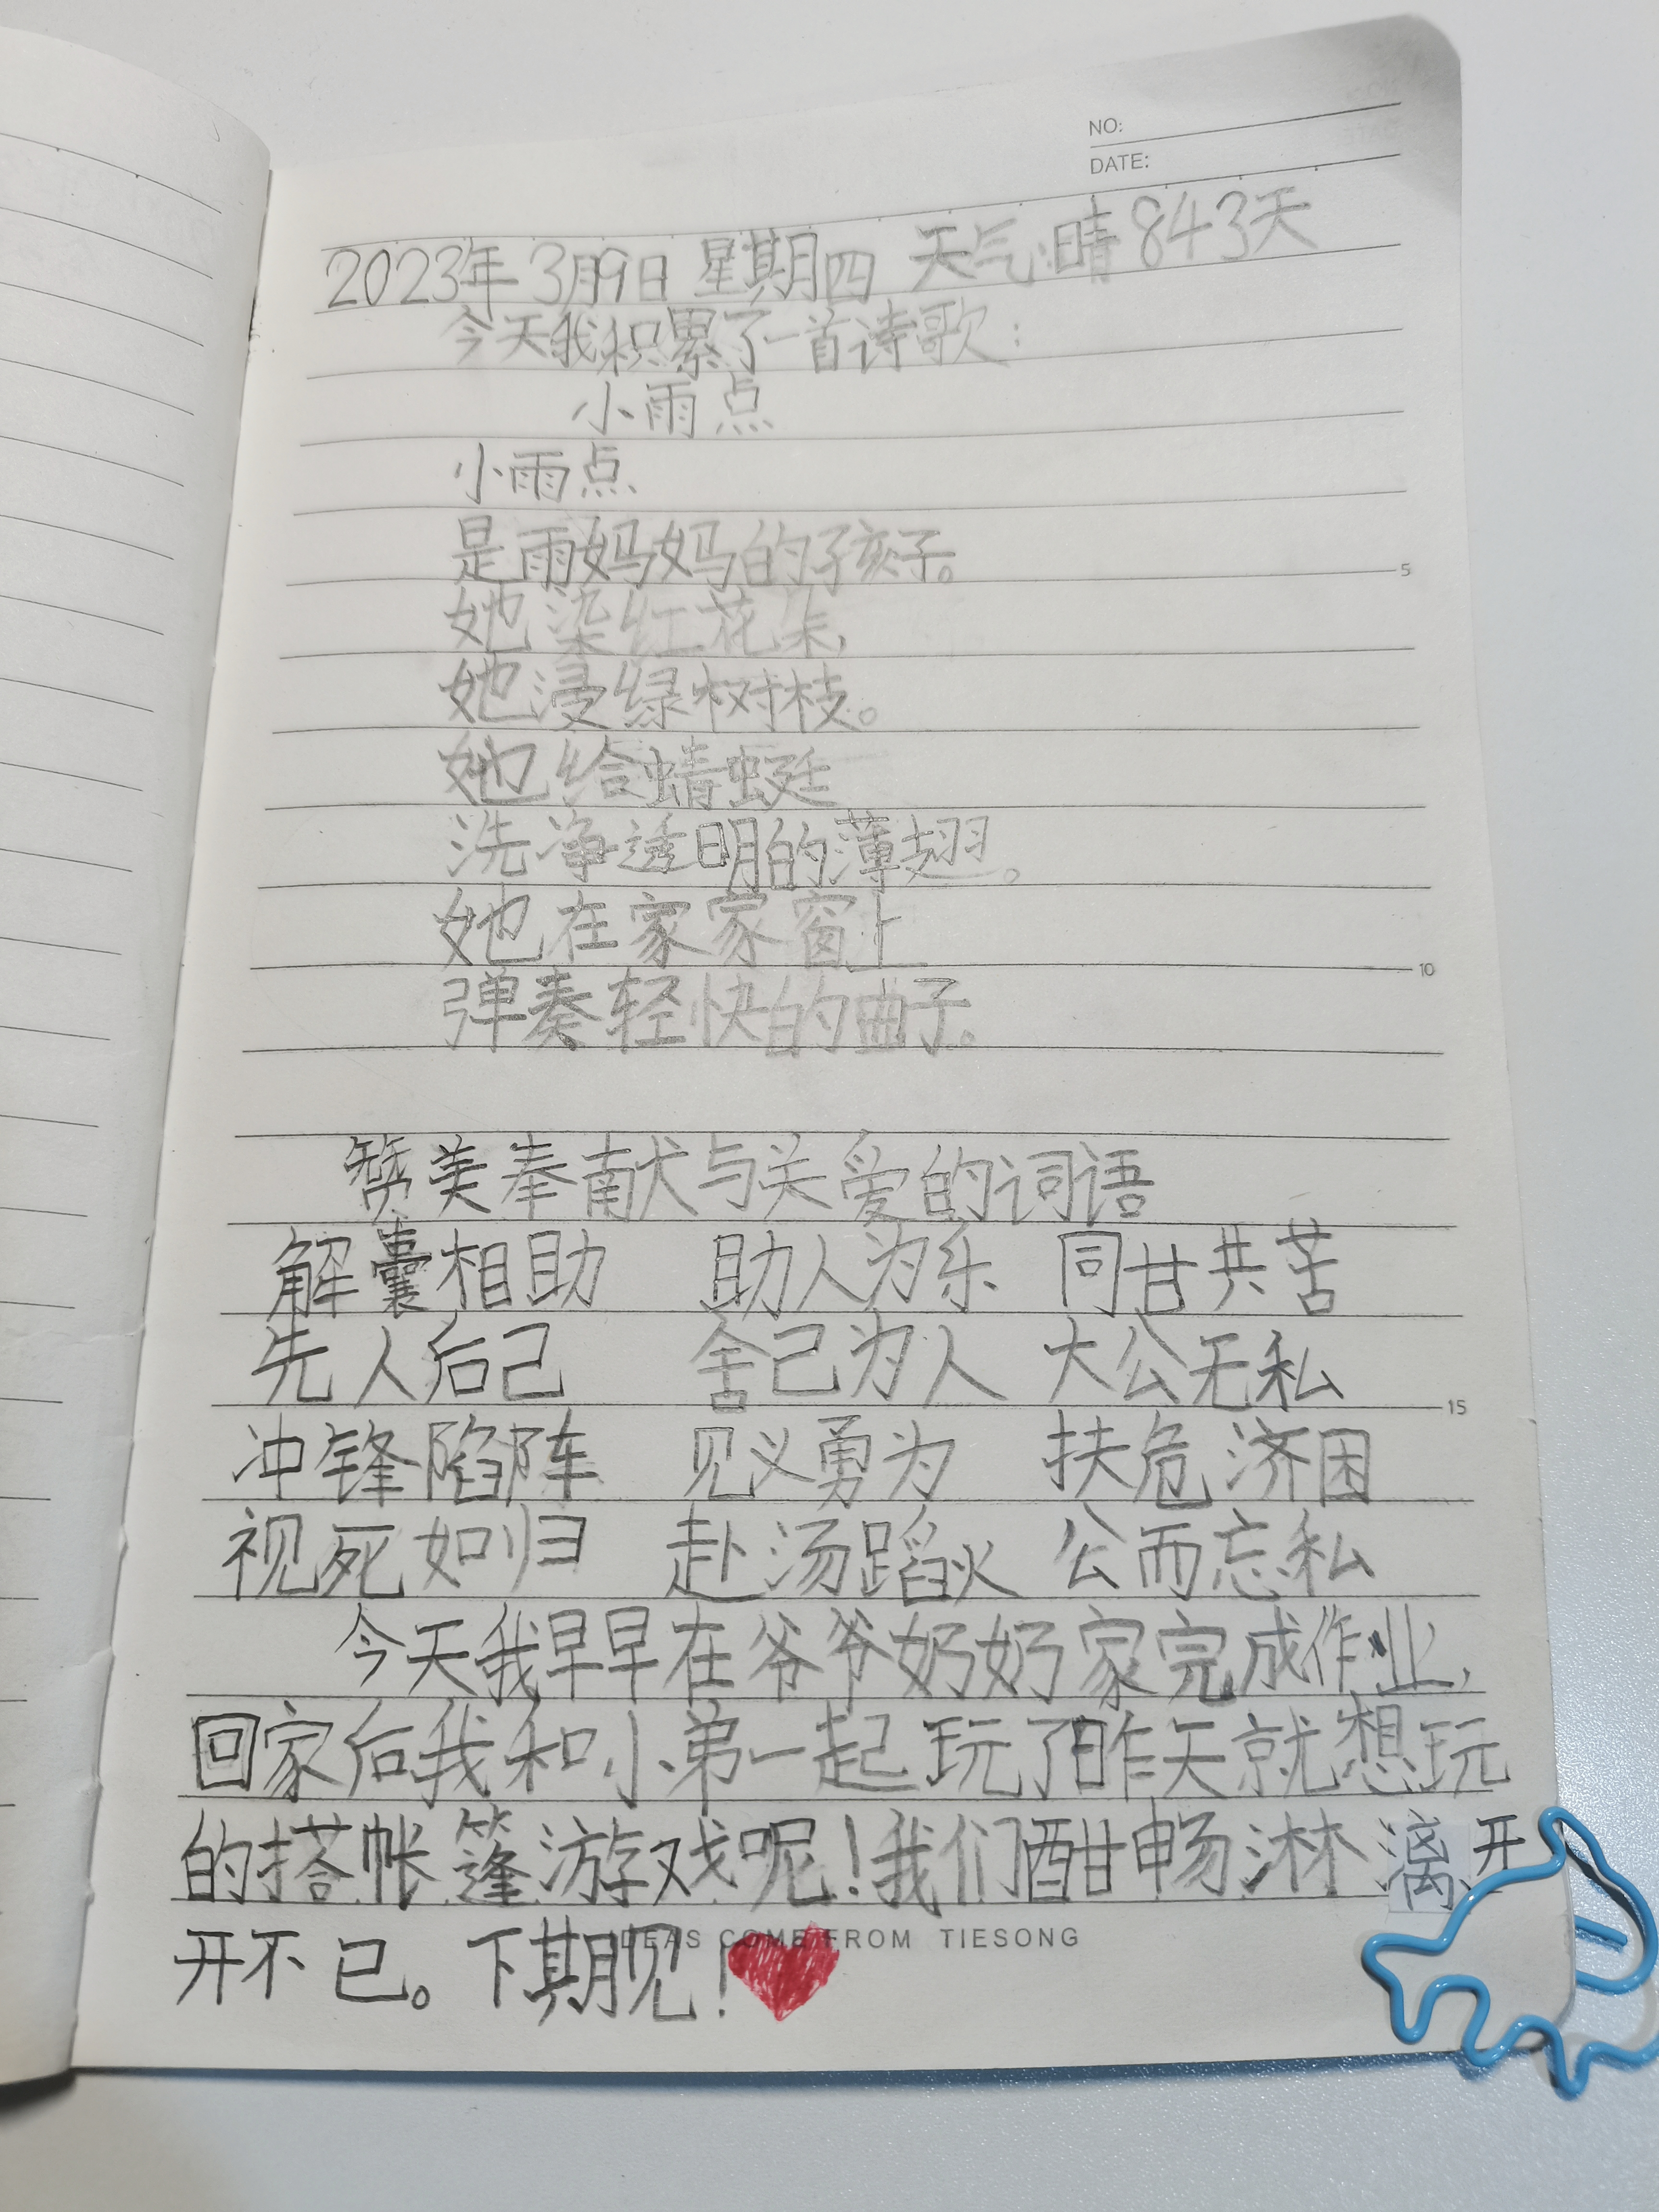 NO:
DATE:
2023年3月9日 星期四 天气:晴 843天
今天我积累了一首诗歌:
小雨点
小雨点
是雨妈妈的孩子。
她染红花朵,
她浸绿树枝。
她给蜻蜓
洗净透明的薄翅。
她在家家窗上
弹奏轻快的曲子。
赞美奉献与关爱的词语
解囊相助 助人为乐 同甘共苦
先人后己 舍己为人 大公无私
冲锋陷阵 见义勇为 扶危济困
视死如归 赴汤蹈火 公而忘私
今天我早早在爷爷奶奶家完成作业,
回家后我和小弟一起玩了昨天就想玩
的搭帐篷游戏呢!我们酣畅淋漓开
开不已。下期见!
IDEAS COME FROM TIESONG
5
10
15